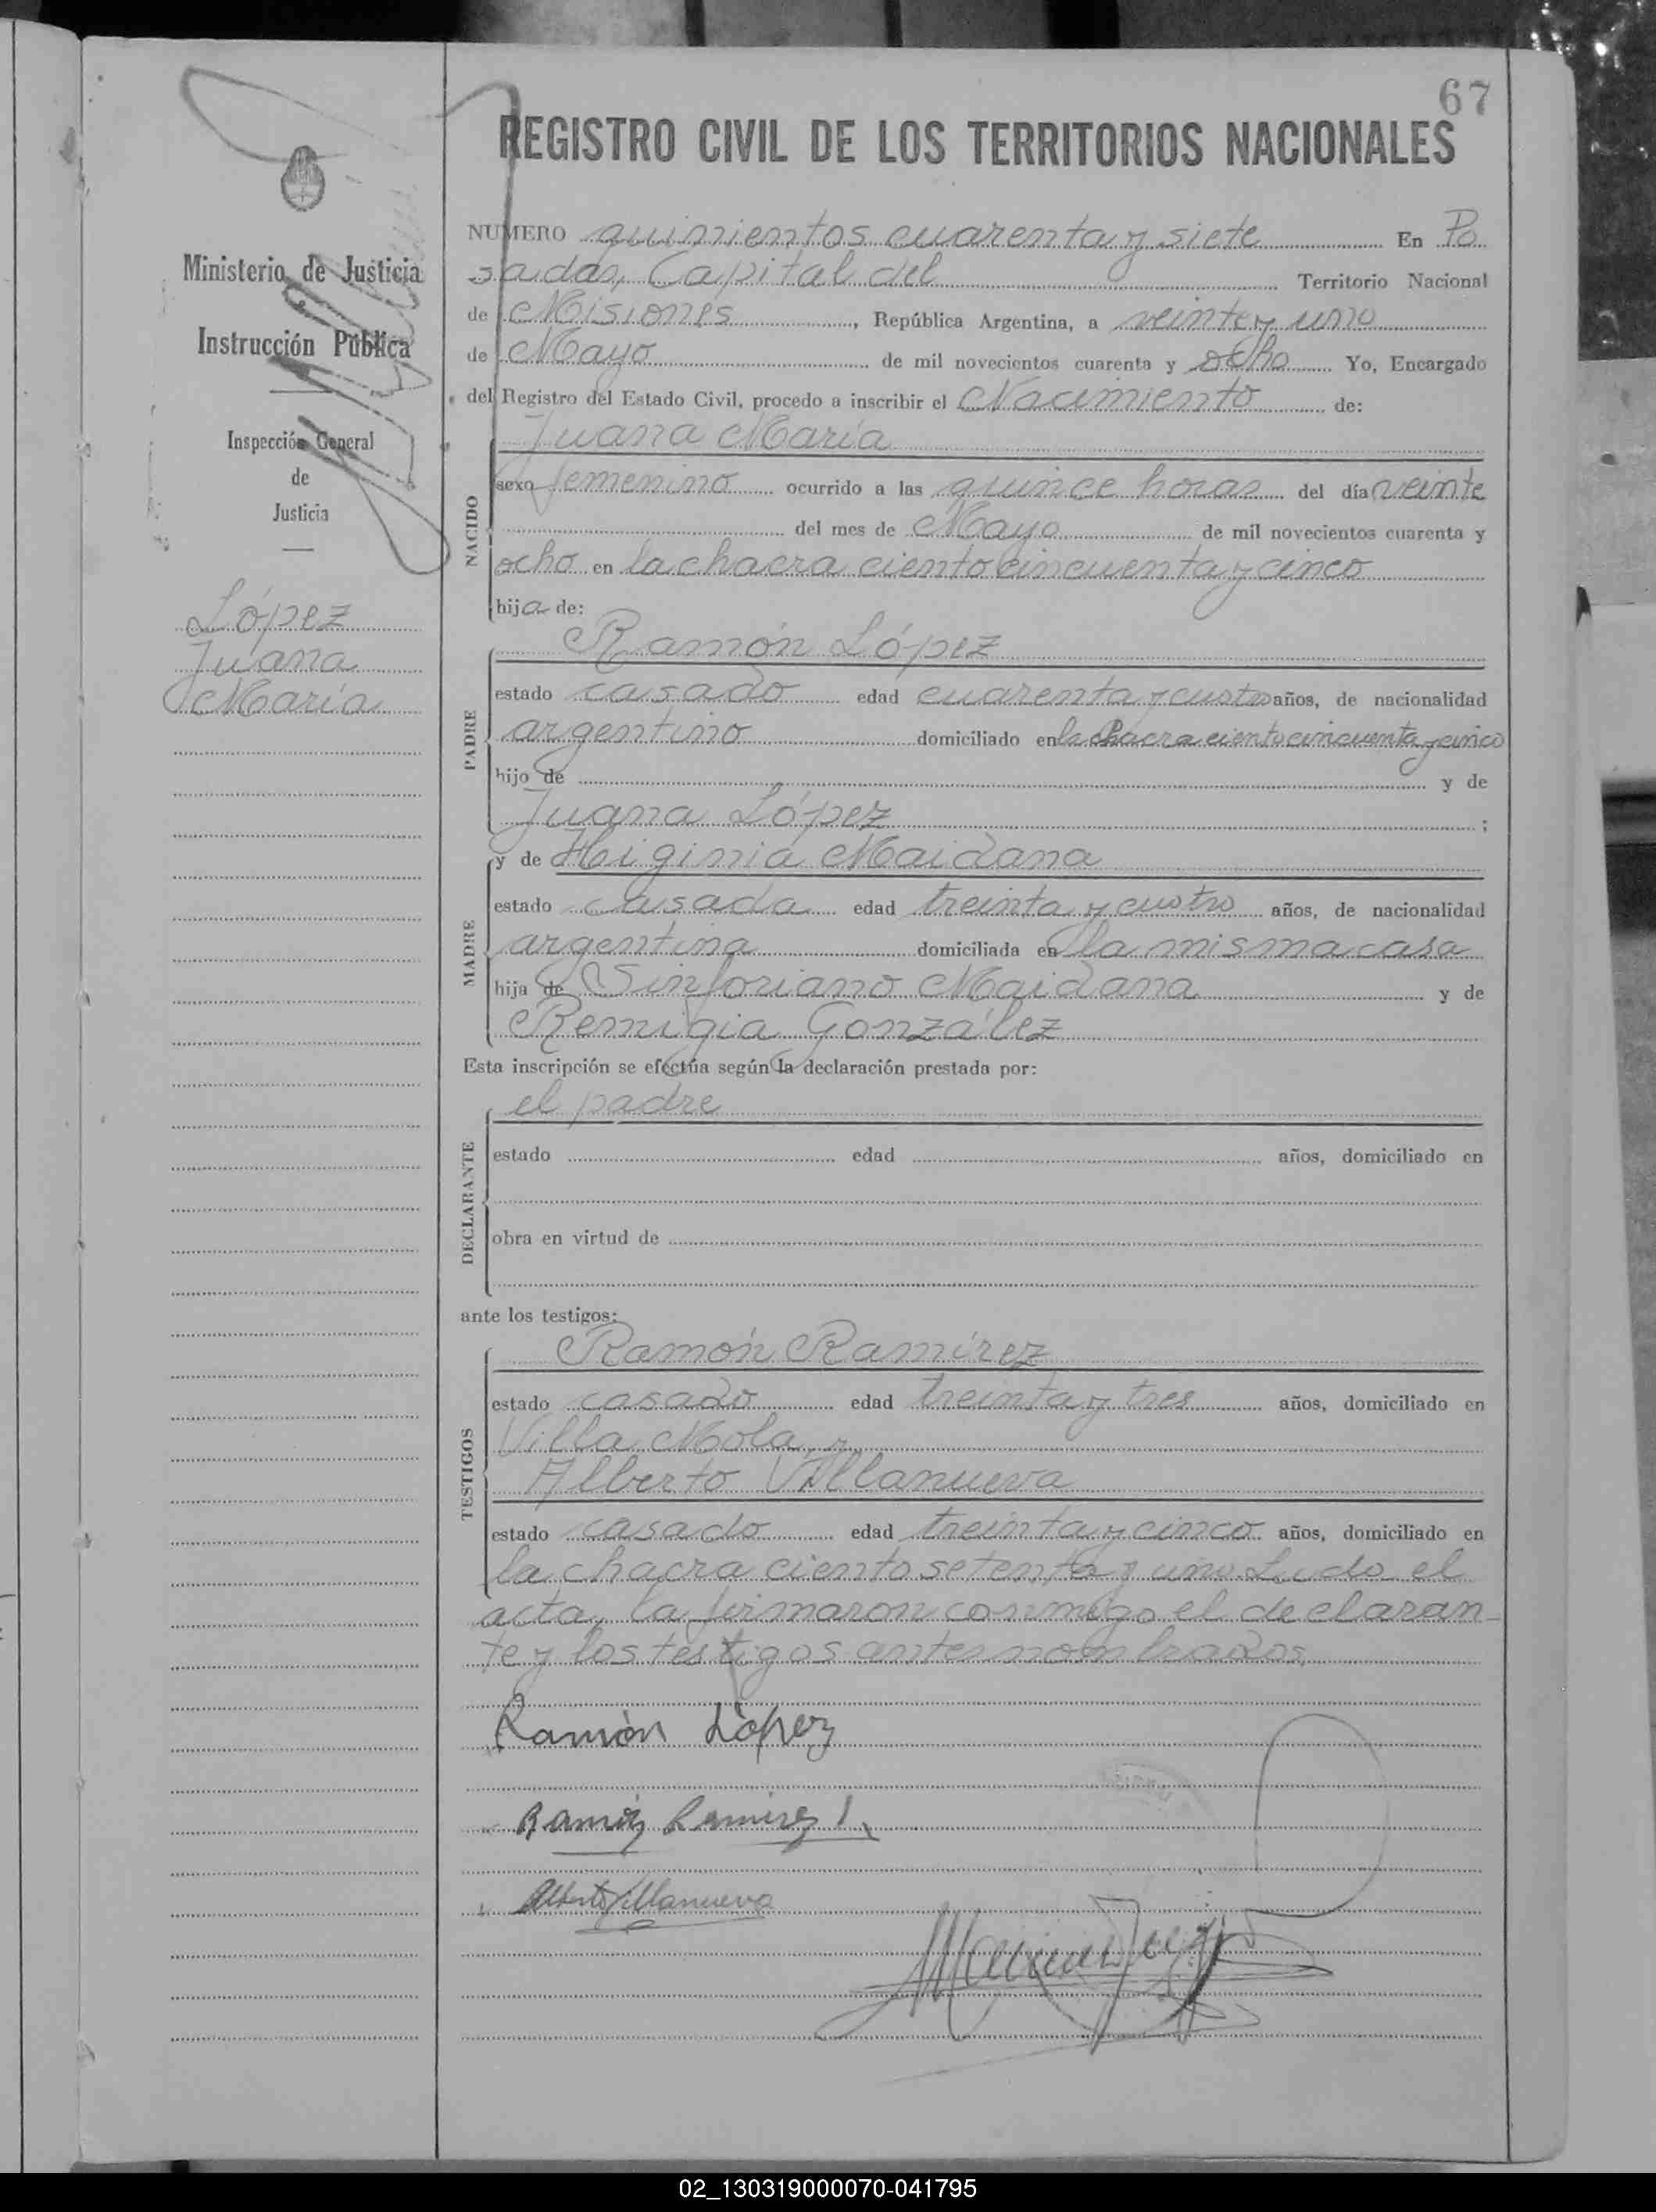 67
REGISTRO CIVIL DE LOS TERRITORIOS NACIONALES
Ministerio de Justicia
Instrucción Pública
Inspección General
de
Justicia
López
Juana
María
NUMERO quinientos cuarenta y siete En Po
sadas, Capital del Territorio Nacional
de Misiones, República Argentina, a veinte y uno
de Mayo de mil novecientos cuarenta y ocho Yo, Encargado
del Registro del Estado Civil, procedo a inscribir el Nacimiento de:
NACIDO
Juana María
sexo femenino ocurrido a las quince horas del día veinte
del mes de Mayo de mil novecientos cuarenta y
ocho en la chacra ciento cincuenta y cinco
hija de:
PADRE
Ramón López
estado casado edad cuarenta y cuatro años, de nacionalidad
argentino domiciliado en la chacra ciento cincuenta y cinco
hijo de y de
Juana López ;
MADRE
y de Higinia Maidana
estado casada edad treinta y cuatro años, de nacionalidad
argentina domiciliada en la misma casa
hija de Sinforiano Maidana y de
Remigia González
Esta inscripción se efectúa según la declaración prestada por:
DECLARANTE
el padre
estado edad años, domiciliado en
obra en virtud de
ante los testigos:
TESTIGOS
Ramón Ramírez
estado casado edad treinta y tres años, domiciliado en
Villa Mola, y
Alberto Villanueva
estado casado edad treinta y cinco años, domiciliado en
la chacra ciento setenta y uno. Leida el
acta, la firmaron conmigo el declaran-
te y los testigos antes nombrados.
Ramón López
Ramón Ramirez
Alberto Villanueva
02_130319000070-041795